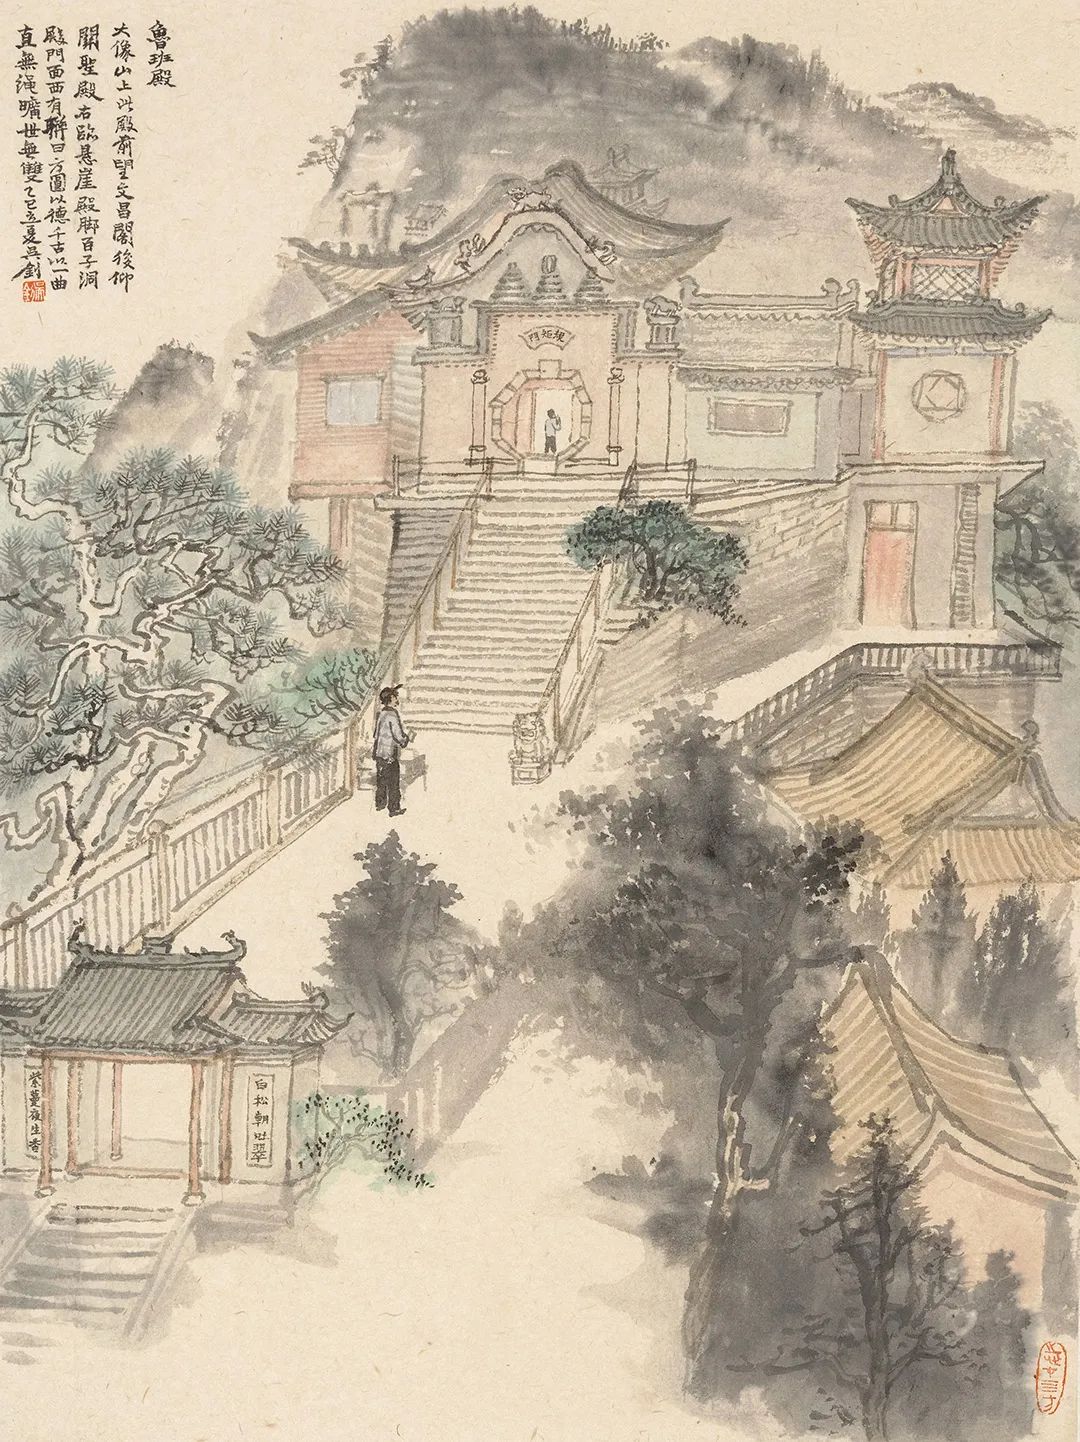 魯班殿
大像山上此殿前望文昌閣後仰
關聖殿右臨悬崖殿脚百子洞
殿門面西有聯曰方圓以德千古以一曲
直無繩曠世無雙乙巳立夏吳釗
規矩門
白松朝吐翠
紫蔓夜生香